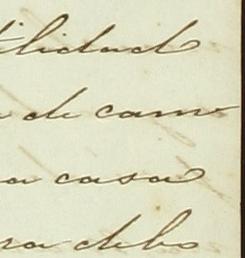 tilidad
de cam
a casa
ra debo